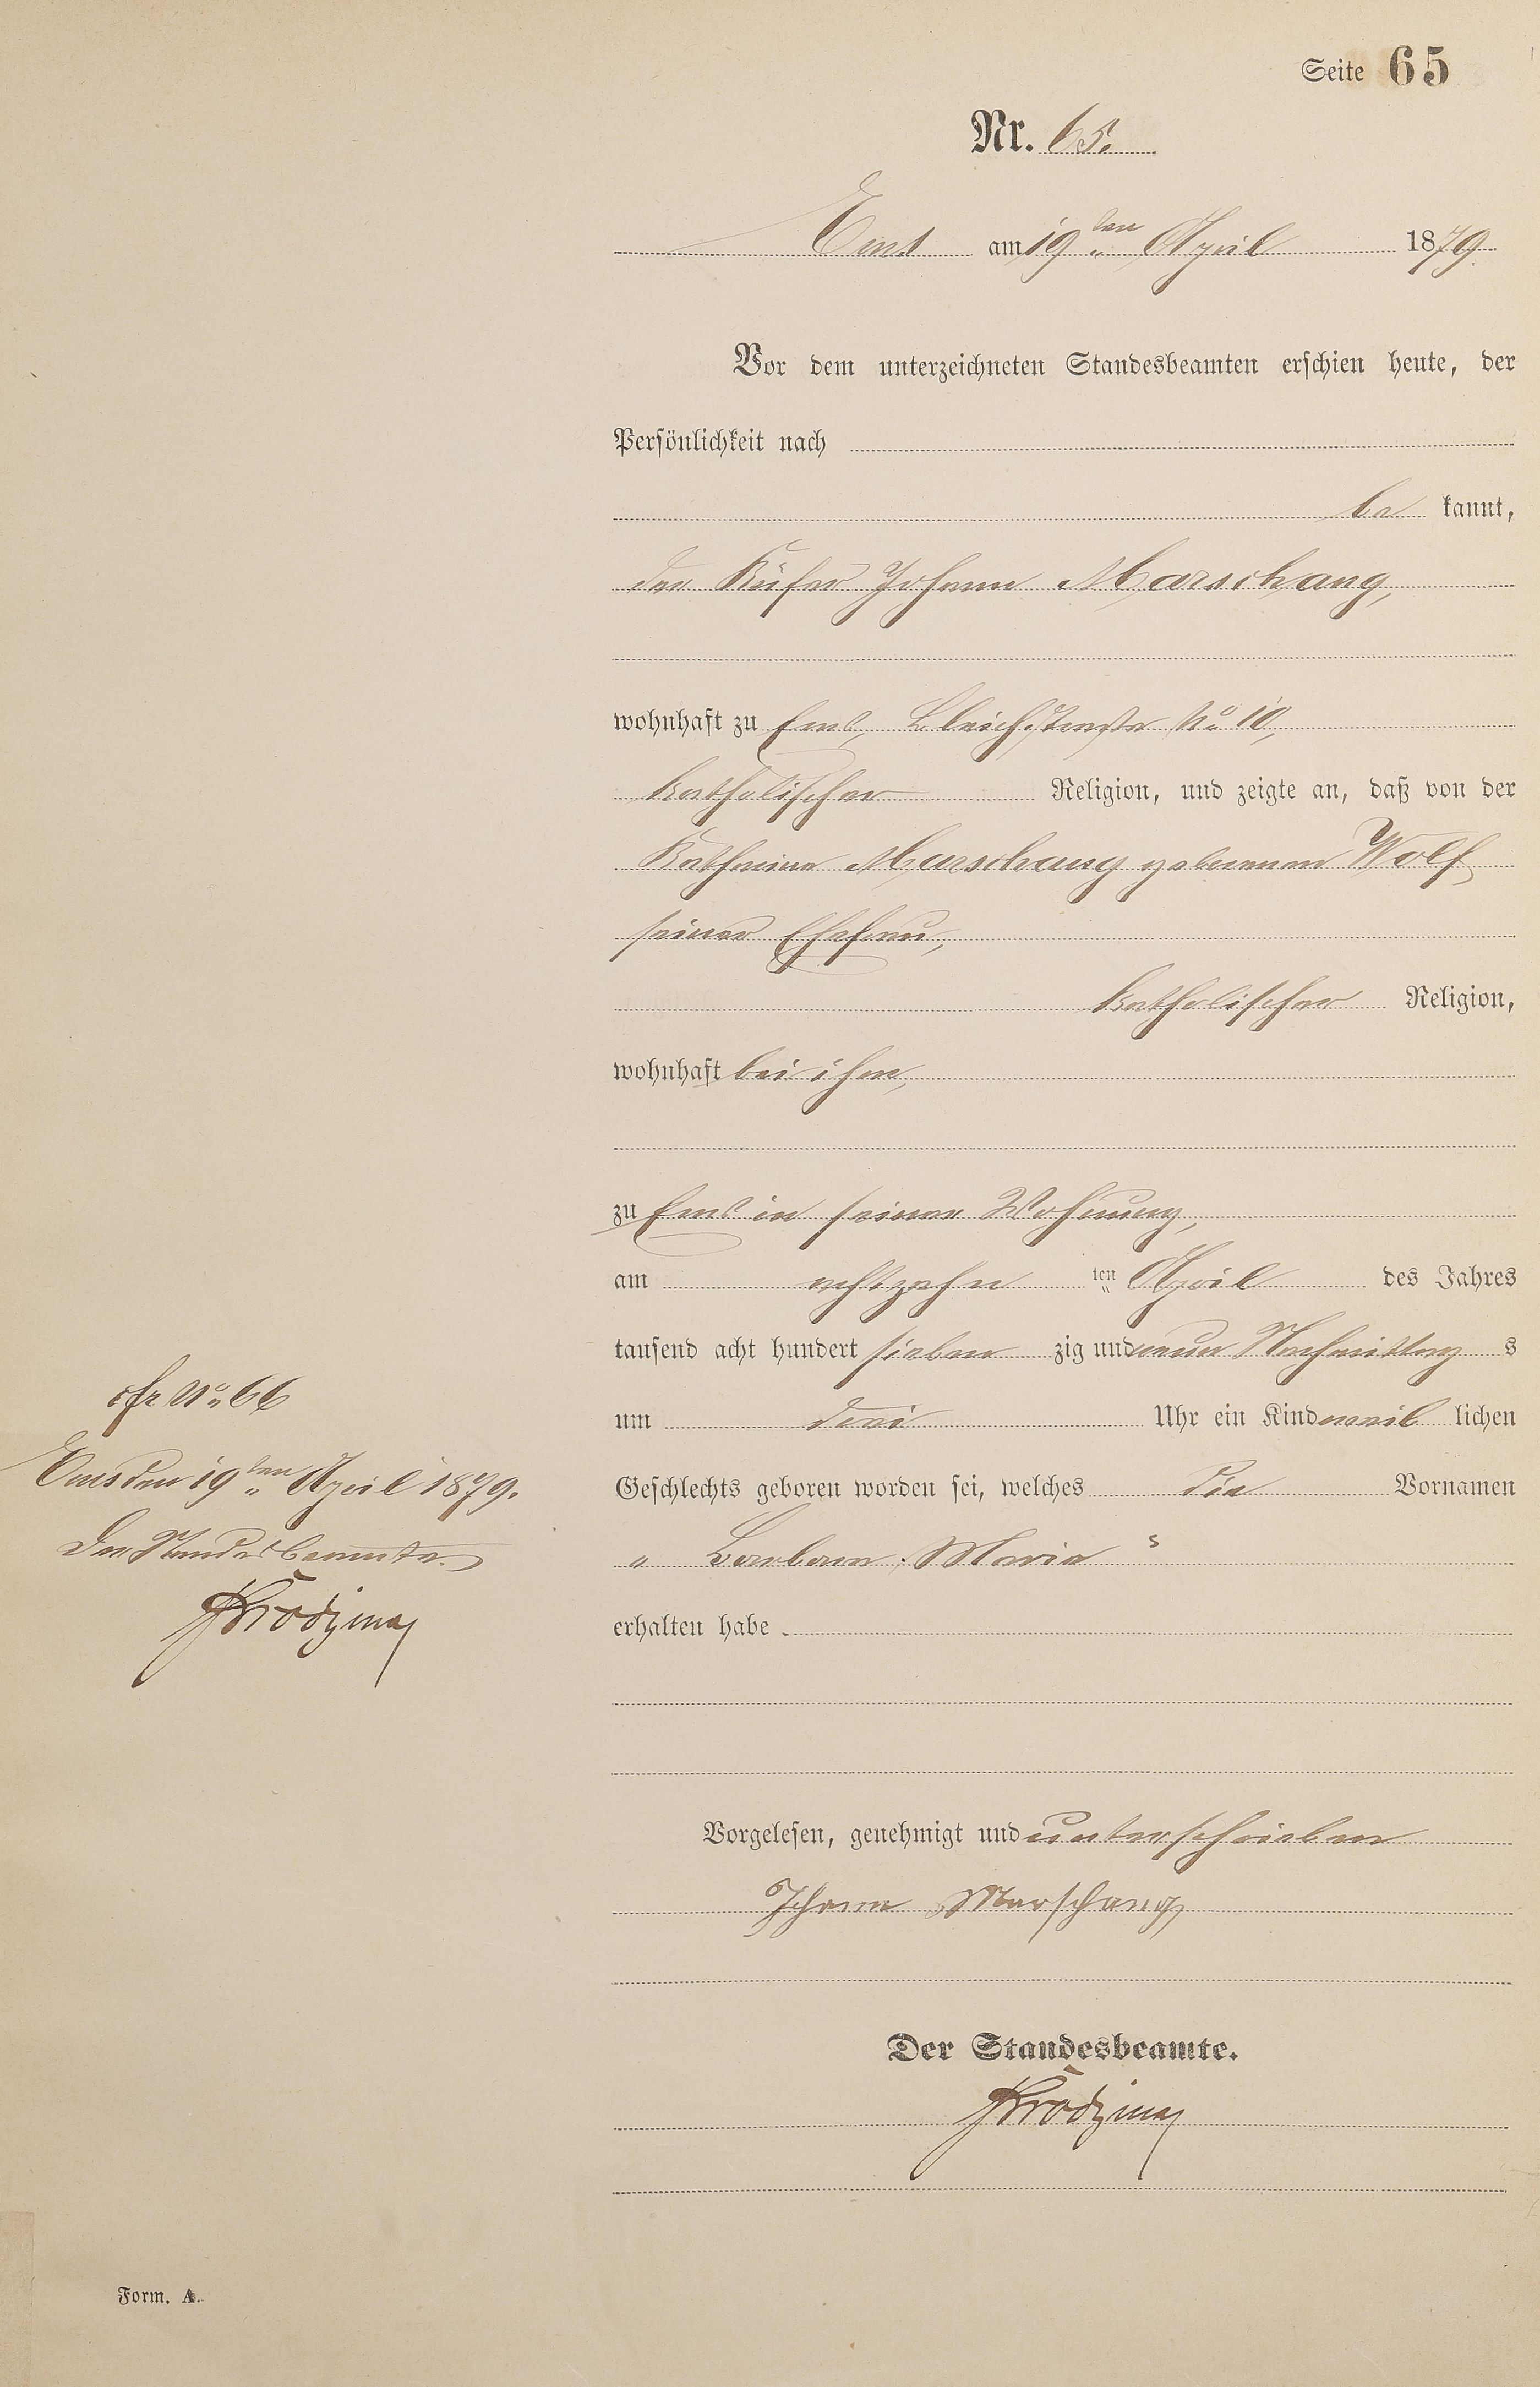 Seite 65
Nr. 65.
Ems am 19ten April 1879.
Vor dem unterzeichneten Standesbeamten erschien heute, der
Persönlichkeit nach
be kannt,
der Küfer Johann Marschang,
wohnhaft zu Ems, Bleichstraße No 10,
katholischer Religion, und zeigte an, daß von der
Katharina Marschang geborenen Wolf
seiner Ehefrau,
katholischer Religion,
wohnhaft bei ihm,
zu Ems in seiner Wohnung,
am achtzehn ten April des Jahres
tausend acht hundert sieben zig und neun Nachmittag s
um drei Uhr ein Kind weib lichen
Geschlechts geboren worden sei, welches die Vornamen
„ Barbara Maria “
erhalten habe.
cfr No 66
Ems den 19ten April 1879.
Der Standesbeamte.
Vorgelesen, genehmigt und unterschrieben
Johann Marschang
Der Standesbeamte.
Form. A.